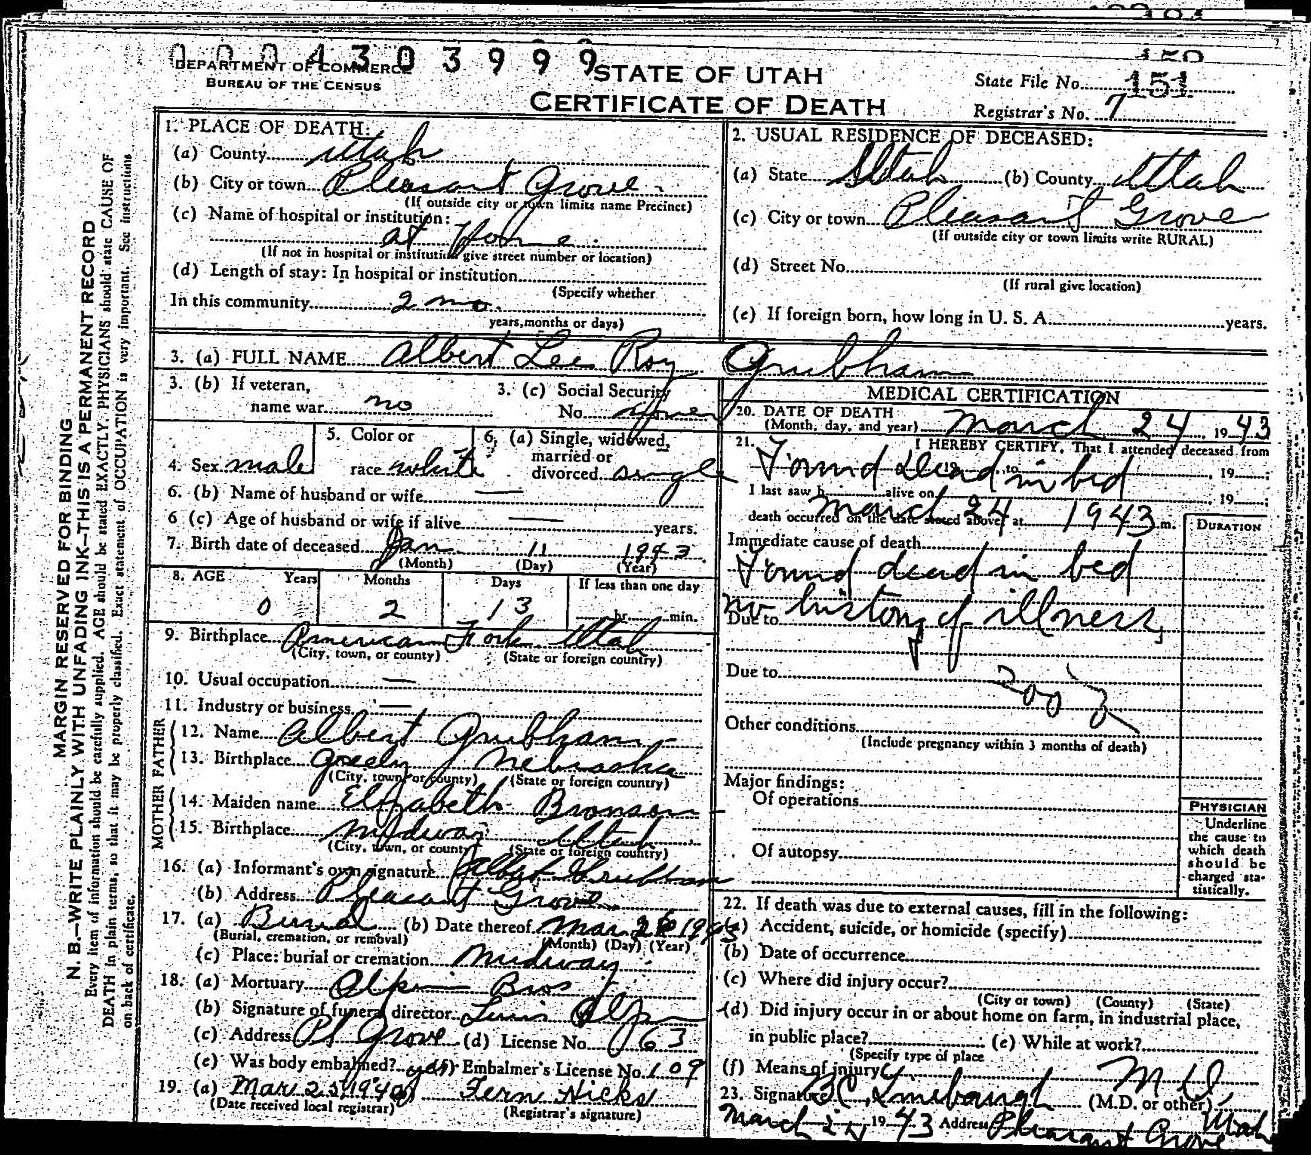 0004303999
DEPARTMENT OF COMMERCE
BUREAU OF THE CENSUS
STATE OF UTAH
CERTIFICATE OF DEATH
State File No. 151
Registrar's No. 7
MARGIN RESERVED FOR BINDING
N. B.—WRITE PLAINLY WITH UNFADING INK—THIS IS A PERMANENT RECORD
Every item of information should be carefully supplied. AGE should be stated EXACTLY. PHYSICIANS should state CAUSE OF
DEATH in plain terms, so that it may be properly classified. Exact statement of OCCUPATION is very important. See instructions
on back of certificate.
1. PLACE OF DEATH:
(a) County Utah
(b) City or town Pleasant Grove
(If outside city or town limits name Precinct)
(c) Name of hospital or institution:
at Home
(If not in hospital or institution give street number or location)
(d) Length of stay: In hospital or institution
(Specify whether
In this community 2 mo.
years, months or days)
2. USUAL RESIDENCE OF DECEASED:
(a) State Utah (b) County Utah
(c) City or town Pleasant Grove
(If outside city or town limits write RURAL)
(d) Street No.
(If rural give location)
(e) If foreign born, how long in U. S. A. years.
3. (a) FULL NAME Albert Lee Roy Grubham
3. (b) If veteran,
name war no
3. (c) Social Security
No.
4. Sex male
5. Color or
race white
6. (a) Single, widowed,
married or
divorced single
6. (b) Name of husband or wife —
6 (c) Age of husband or wife if alive — years.
7. Birth date of deceased Jan 11 1943
(Month) (Day) (Year)
8. AGE Years Months Days If less than one day
0 2 13 hr. min.
9. Birthplace American Fork Utah
(City, town, or county) (State or foreign country)
10. Usual occupation —
11. Industry or business —
FATHER
12. Name Albert Grubham
13. Birthplace Greely Nebraska
(City, town, or county) (State or foreign country)
MOTHER
14. Maiden name Elizabeth Bronson
15. Birthplace Midway Utah
(City, town, or county) (State or foreign country)
16. (a) Informant's own signature Albert Grubham
(b) Address Pleasant Grove
17. (a) Burial (b) Date thereof Mar. 26 1943
(Burial, cremation, or removal) (Month) (Day) (Year)
(c) Place: burial or cremation Midway
18. (a) Mortuary Olpin Bros
(b) Signature of funeral director Olpin
(c) Address Pl Grove (d) License No. 63
(e) Was body embalmed? yes Embalmer's License No. 109
19. (a) Mar 25, 194 Fern Hicks
(Date received local registrar) (Registrar's signature)
MEDICAL CERTIFICATION
20. DATE OF DEATH
(Month, day, and year) March 24, 1943
21. I HEREBY CERTIFY, That I attended deceased from
Found Dead in bed , 19 , to , 19
I last saw h alive on , 19
death occurred on the date stated above, at m.
March 24 1943
DURATION
Immediate cause of death
Found dead in bed
no history of illness
Due to
Due to
Other conditions
(Include pregnancy within 3 months of death)
Major findings:
Of operations
Of autopsy
PHYSICIAN
Underline
the cause to
which death
should be
charged sta-
tistically.
22. If death was due to external causes, fill in the following:
(a) Accident, suicide, or homicide (specify)
(b) Date of occurrence
(c) Where did injury occur?
(City or town) (County) (State)
(d) Did injury occur in or about home on farm, in industrial place,
in public place? (e) While at work?
(Specify type of place
(f) Means of injury
23. Signature M D. (M.D. or other)
March 24 1943 Address Pleasant Grove Utah